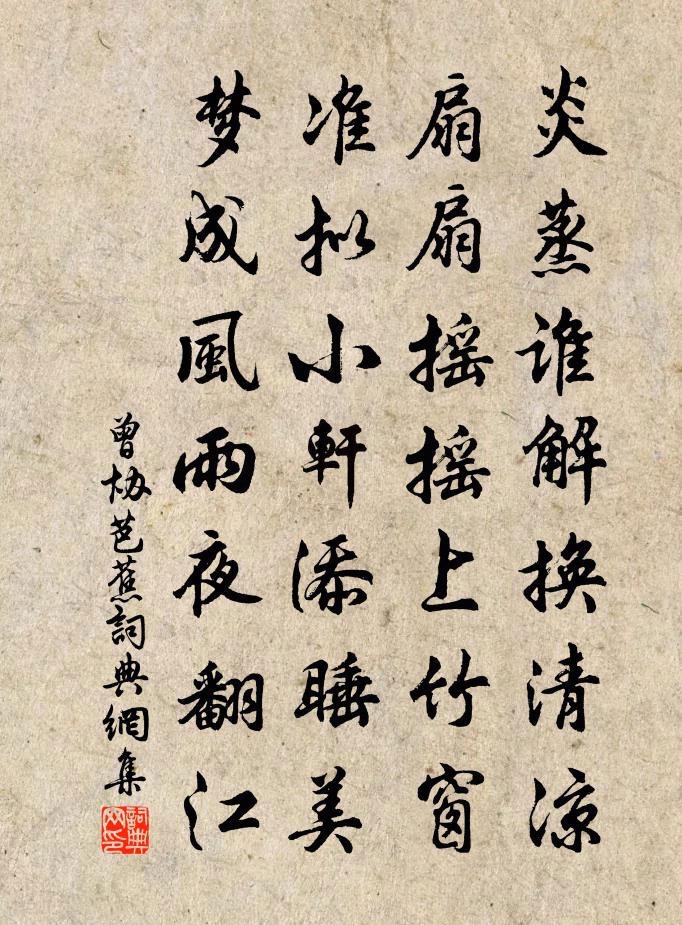 炎蒸谁解换清凉
扇扇摇摇上竹窗
准拟小軒添睡美
梦成風雨夜翻江
曾协芭蕉詞典網集
詞典網印